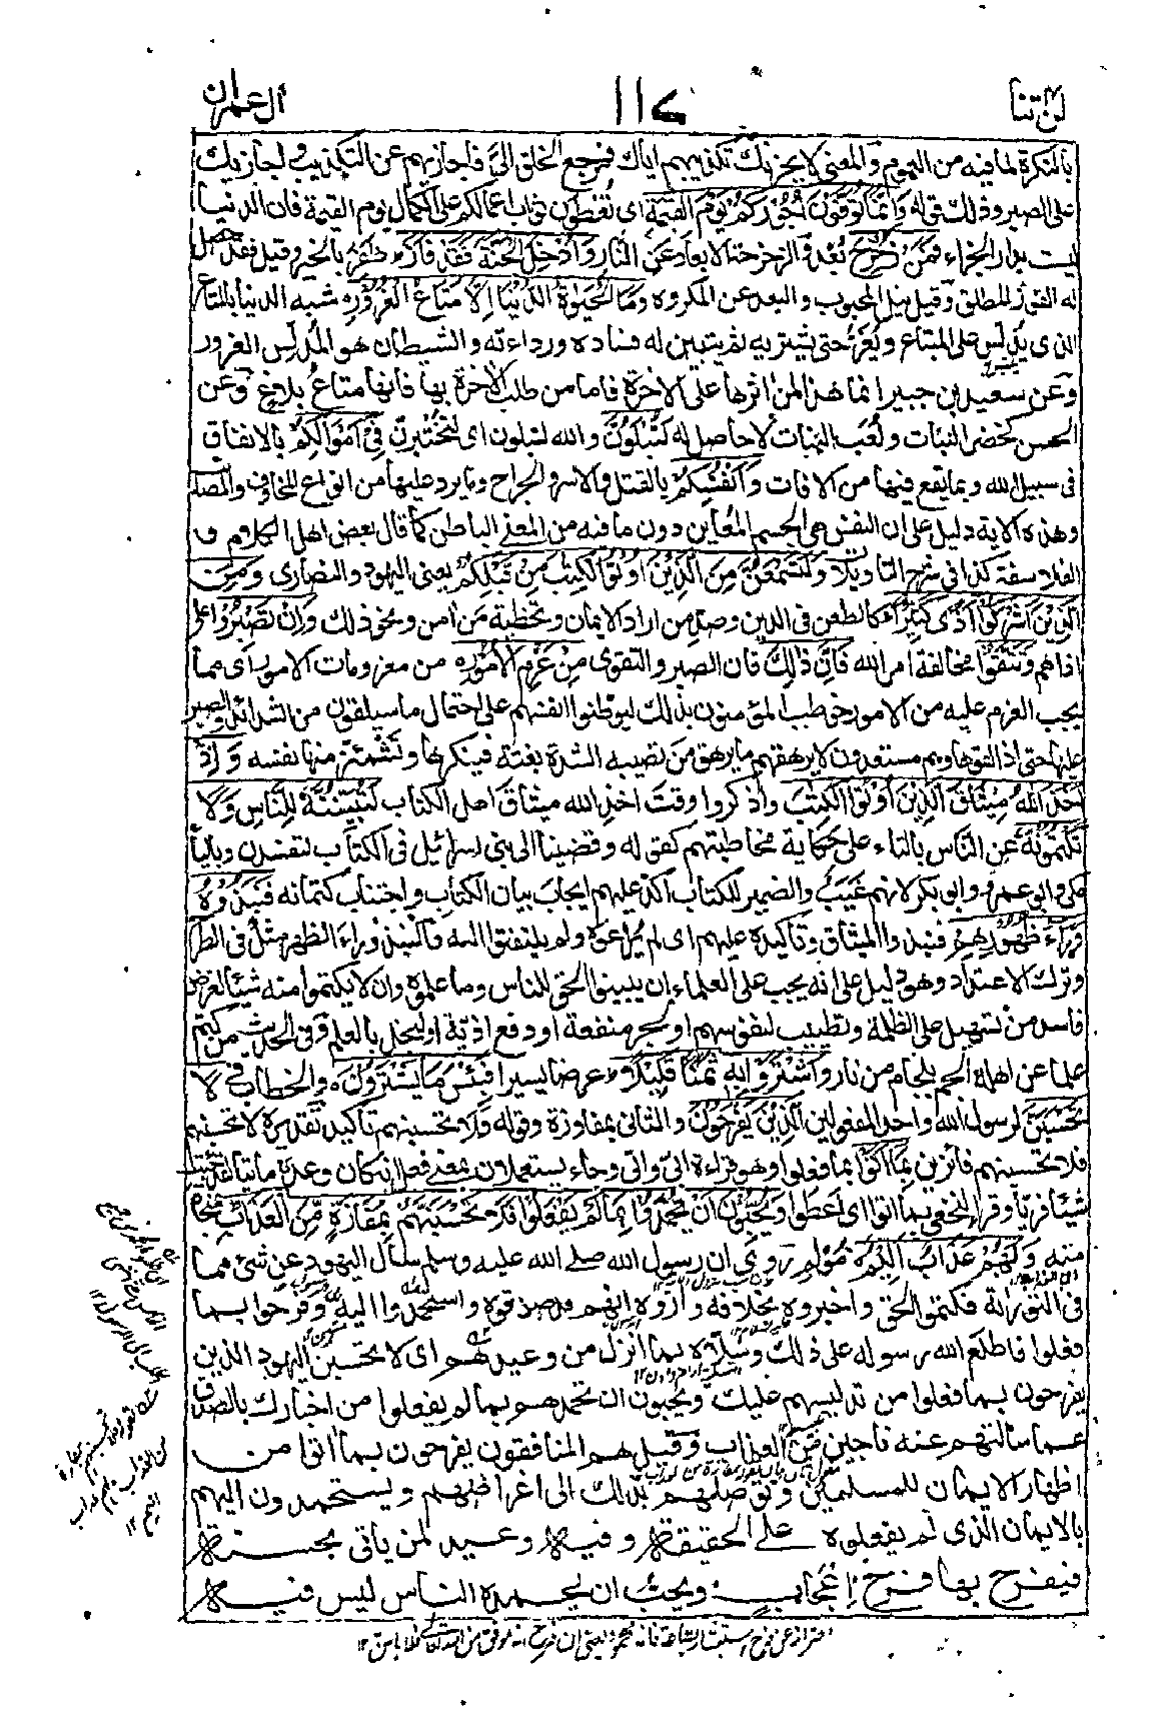 لن تنا ١١٧ ال عمران
بالنكرة لما فيه من العموم والمعنى لا يحزنك تكذيبهم اياك فمرجع الخلق الىّ فاجازيهم عن التكذيب واجازيك
على الصبر وذلك قوله وَاِنَّمَا تُوَفَّوْنَ اُجُوْرَكُمْ يَوْمَ الْقِيٰمَةِ اى تُعْطَون ثواب اعمالكم على الكمال يوم القيمة فان الدنيا
ليست بدار الجزاء فَمَنْ زُحْزِحَ بُعِّدَ والزحزحة الابعاد عَنِ النَّارِ وَاُدْخِلَ الْجَنَّةَ فَقَدْ فَازَ ظفر بالخير وقيل فقد حصل
له الفوز المطلق وقيل نيل المحبوب والبعد عن المكروه وَمَا الْحَيٰوةُ الدُّنْيَا اِلَّا مَتَاعُ الْغُرُوْرِ شبه الدنيا بالمتاع
الذى يدلس على المبتاع ويُغَرّ حتى يشتريه ثم يتبين له فساده ورداءته والشيطان هو المدلس الغرور
وعن سعيد بن جبير انما هذا لمن اثرها على الاخرة فاما من طلب الاخرة بها فانها متاع بلاغ وعن
الحسن كخضر النبات ولُعَب البنات لا حاصل له لَتُبْلَوُنَّ والله لتبلون اى لتختبرن فِىْ اَمْوَالِكُمْ بالانفاق
فى سبيل الله وبما يقع فيها من الافات وَاَنْفُسِكُمْ بالقتل والاسر والجراح وما يرد عليها من انواع المخاوف والمصا
وهذه الاية دليل على ان النفس هى الجسم المُعاين دون ما فيه من المعنى الباطن كما قال بعض اهل الكلام و
الفلاسفة كذا فى شرح التاويلات وَلَتَسْمَعُنَّ مِنَ الَّذِيْنَ اُوْتُوا الْكِتٰبَ مِنْ قَبْلِكُمْ يعنى اليهود والنصارى وَمِنَ
الَّذِيْنَ اَشْرَكُوْا اَذًى كَثِيْرًا كالطعن فى الدين وصد من اراد الايمان وتخطئة من امن ونحو ذلك وَاِنْ تَصْبِرُوْا على
اذاهم وَتَتَّقُوْا مخالفة امر الله فَاِنَّ ذٰلِكَ فان الصبر والتقوى مِنْ عَزْمِ الْاُمُوْرِ من معزومات الامور اى مما
يجب العزم عليه من الامور خوطب المؤمنون بذلك ليوطنوا انفسهم على احتمال ما سيلقون من الشدائد والصبر
عليها حتى اذا لقوها وهم مستعدون لا يرهقهم ما يرهق من تصيبه الشدة بغتة فينكرها وتشمئز منها نفسه وَاِذْ
اَخَذَ اللّٰهُ مِيْثَاقَ الَّذِيْنَ اُوْتُوا الْكِتٰبَ واذكروا وقت اخذ الله ميثاق اهل الكتاب لَتُبَيِّنُنَّهٗ لِلنَّاسِ وَلَا
تَكْتُمُوْنَهٗ عن الناس بالتاء على حكاية مخاطبتهم كقوله وقضينا الى بنى اسرائيل فى الكتاب لتفسدن وبالياء
مكى وابو عمرو وابو بكر لانهم غَيَب والضمير للكتاب اكد عليهم ايجاب بيان الكتاب واجتناب كتمانه فَنَبَذُوْهُ
وَرَآءَ ظُهُوْرِهِمْ فنبذوا الميثاق وتاكيده عليهم اى لم يراعوه ولم يلتفتوا اليه والنبذ وراء الظهر مثل فى الطرح
وترك الاعتداد وهو دليل على انه يجب على العلماء ان يبينوا الحق للناس وما علموه وان لا يكتموا منه شيئا لغرض
فاسد من تسهيل على الظلمة وتطييب لنفوسهم او لجر منفعة او دفع اذية او لبخل بالعلم وفى الحديث من كتم
علما عن اهله الجم بلجام من نار وَاشْتَرَوْا بِهٖ ثَمَنًا قَلِيْلًا عرضا يسيرا فَبِئْسَ مَا يَشْتَرُوْنَ والخطاب فى لَا
تَحْسَبَنَّ لرسول الله واحد المفعولين الَّذِيْنَ يَفْرَحُوْنَ والثانى بمفازة وقوله فلا تحسبنهم تاكيد تقديره لا تحسبنهم
فلا تحسبنهم فائزين بِمَا اَتَوْا بما فعلوا وهو قراءة ابىّ واتى وجاء يستعملان بمعنى فعل انه كان وعده ماتيا لقد جئت
شيئا فريا وقرأ النخعى بما اٰتوا اى اعطوا وَيُحِبُّوْنَ اَنْ يُّحْمَدُوْا بِمَا لَمْ يَفْعَلُوْا فَلَا تَحْسَبَنَّهُمْ بِمَفَازَةٍ مِّنَ الْعَذَابِ بمنجاة
منه وَلَهُمْ عَذَابٌ اَلِيْمٌ مؤلم روى ان رسول الله صلى الله عليه وسلم سأل اليهود عن شئ مما
فى التوراة فكتموا الحق واخبروه بخلافه واروه انهم قد صدقوه واستحمدوا اليه وفرحوا بما
فعلوا فاطلع الله رسوله على ذلك وسلّاه بما انزل من وعيدهم اى لا تحسبن اليهود الذين
يفرحون بما فعلوا من تدليسهم عليك ويحبون ان تحمدهم بما لم يفعلوا من اخبارك بالصدق
عما سالتهم عنه ناجين من العذاب وقيل هم المنافقون يفرحون بما اتوا من
اظهار الايمان للمسلمين وتوصلهم بذلك الى اغراضهم ويستحمدون اليهم
بالايمان الذى لم يفعلوه على الحقيقة وفيه وعيد لمن ياتى بحسنة
فيفرح بها فرح اعجاب ويحب ان يحمده الناس بما ليس فيه